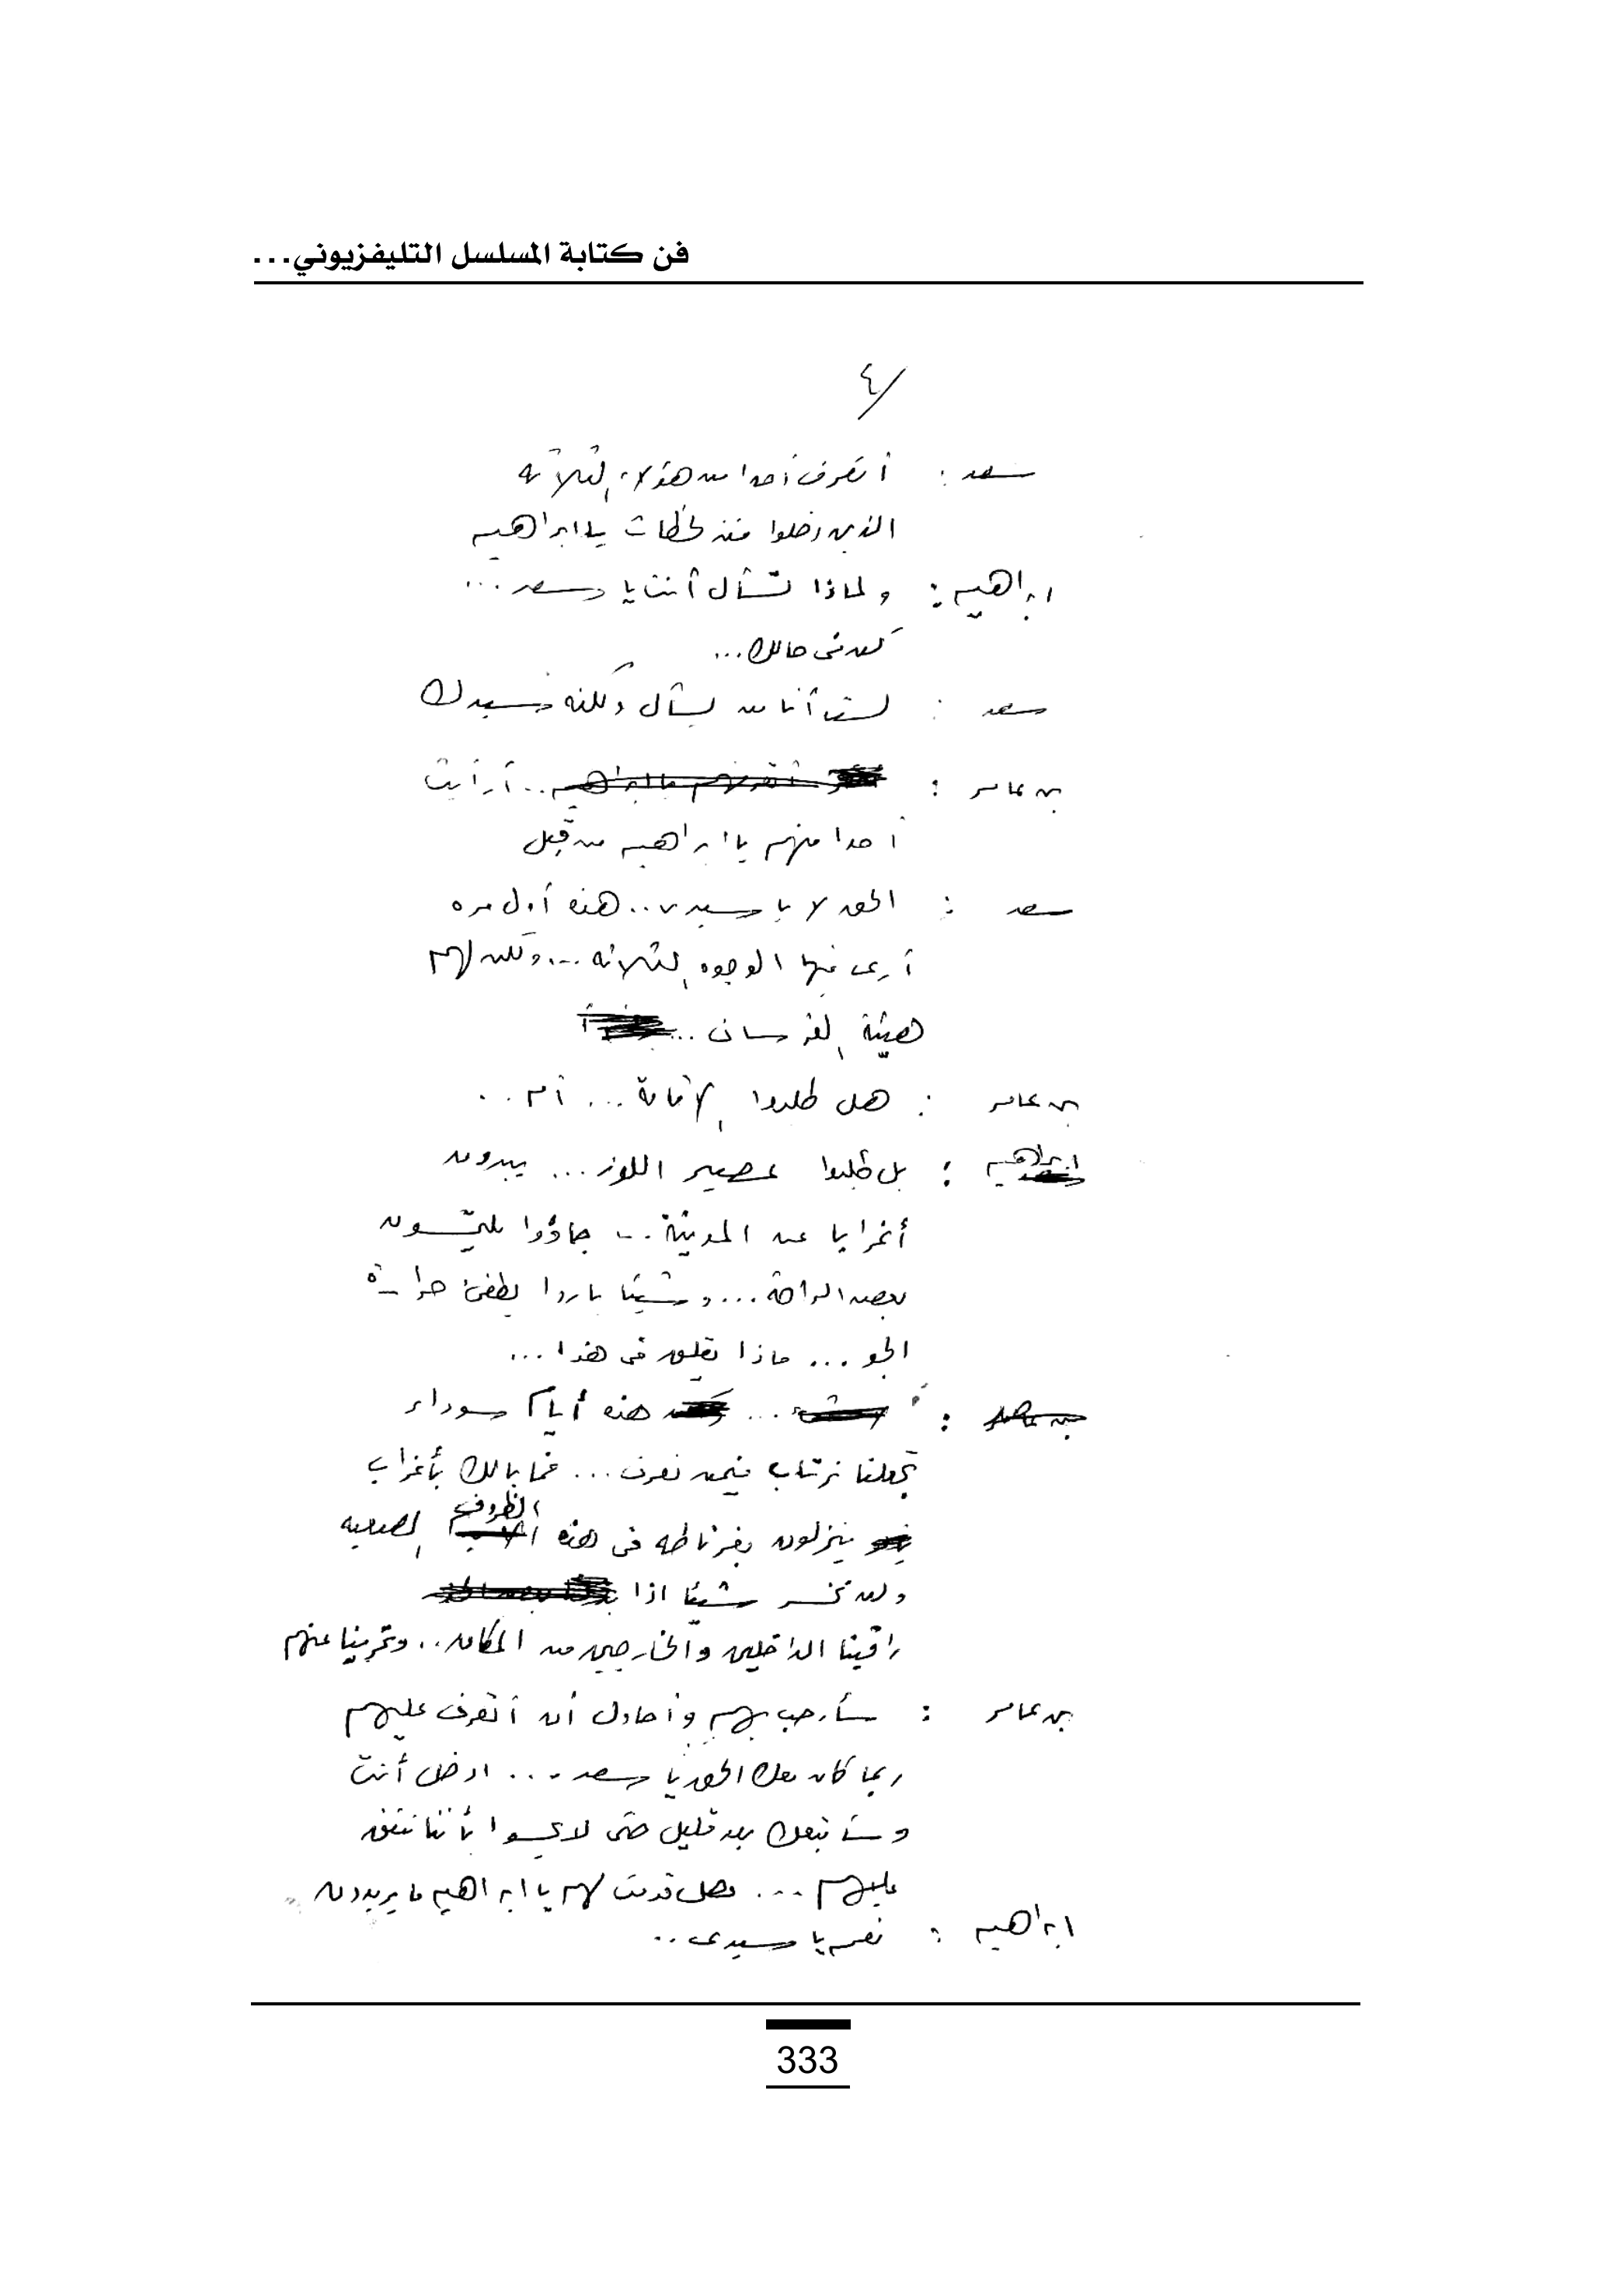 فن كتابة المسلسل التليفزيوني...
٤/
سعد : أتعرف أحدا من هؤلاء الثلاثه
الذين دخلوا منذ لحظات يا ابراهيم
ابراهيم : ولماذا تسأل أنت يا سعد ...
كعدنى حالك ...
سعد : لست أنا من يسأل ولكنه سيدك
بن عامر : أتعرفهم يا ابراهيم .. أرأيت
أحدا منهم يا ابراهيم من قبل
سعد : الحق لا يا سيدى .. هذه أول مره
أرى فيها الوجوه الثلاثه ... ولكن لهم
هيئة الفرسان ...
بن عامر : هل طلبوا الاقامة ... أم ..
ابراهيم : بل طلبوا عصير اللوز ... يبدون
أغرابا عن المدينة .. جاؤوا يلتمسون
بعض الراحة ... وشيئا باردا يطفئ حرارة
الجو ... ماذا يقلق فى هذا ...
: ... هذه أيام سوداء
تجعلنا نرتاب فيمن نعرف ... فما بالك بأغراب
ينزلون بغرناطه فى هذه الظروف الصعبه
ولن نخسر شيئا اذا
راقبنا الداخلين والخارجين من المكان .. وتحرينا عنهم
بن عامر : سأرحب بهم وأحاول أن أتعرف عليهم
ربما كان معك الحق يا سعد ... ادخل أنت
وسأتبعك بعد قليل حتى لا يحسوا بأننا نتفق
عليهم ... وهل قدمت لهم يا ابراهيم ما يريدون
ابراهيم : نعم يا سيدى ..
333